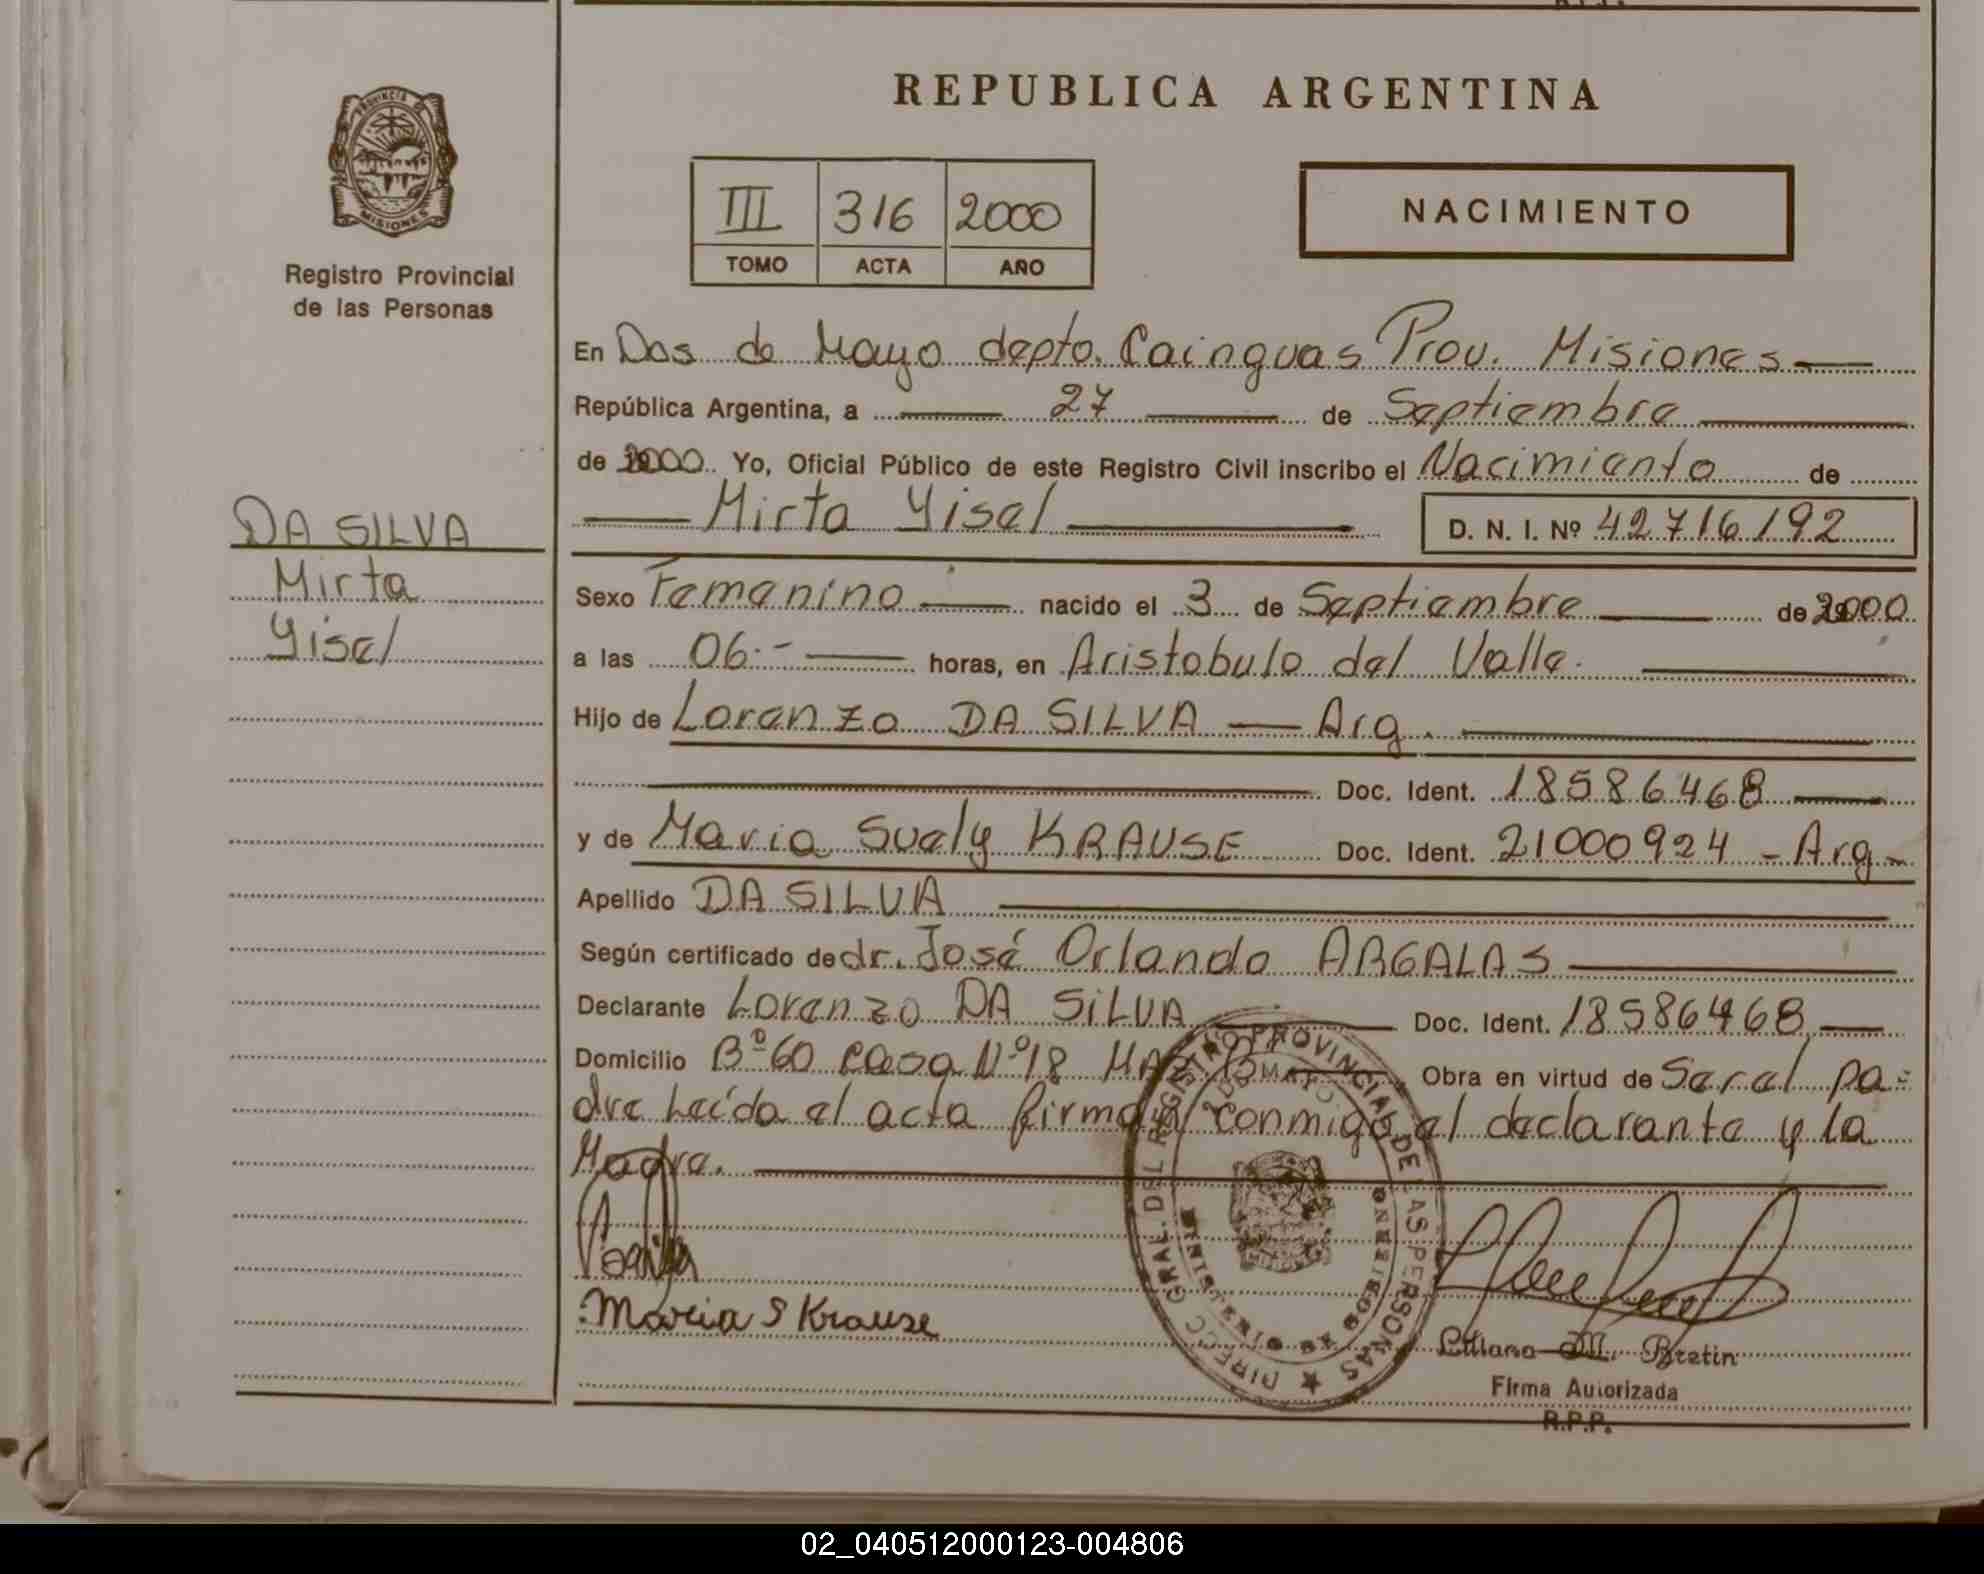 REPUBLICA ARGENTINA
PROVINCIA DE
MISIONES
Registro Provincial
de las Personas
III 316 2000
TOMO ACTA AÑO
NACIMIENTO
En Dos de Mayo depto. Cainguas Prov. Misiones
República Argentina, a 27 de Septiembre
de 2000 Yo, Oficial Público de este Registro Civil inscribo el Nacimiento de
Mirta Yisel D. N. I. Nº 42716192
DA SILVA
Mirta
Yisel
Sexo Femenino nacido el 3 de Septiembre de 2000
a las 06.- horas, en Aristobulo del Valle.
Hijo de Lorenzo DA SILVA — Arg.
Doc. Ident. 18586468
y de Maria Suely KRAUSE Doc. Ident. 21000924 - Arg -
Apellido DA SILVA
Según certificado de dr. José Orlando ARGALAS
Declarante Lorenzo DA SILVA Doc. Ident. 18586468
Domicilio Bº 60 Casa Nº 18 Obra en virtud de Ser el pa=
dre Leída el acta firman conmigo el declarante y la
Madre.
DIRECC GRAL. DEL REGISTRO PROVINCIAL DE LAS PERSONAS
Maria S Krause
Liliana M. Bretin
Firma Autorizada
R.P.P.
02_040512000123-004806